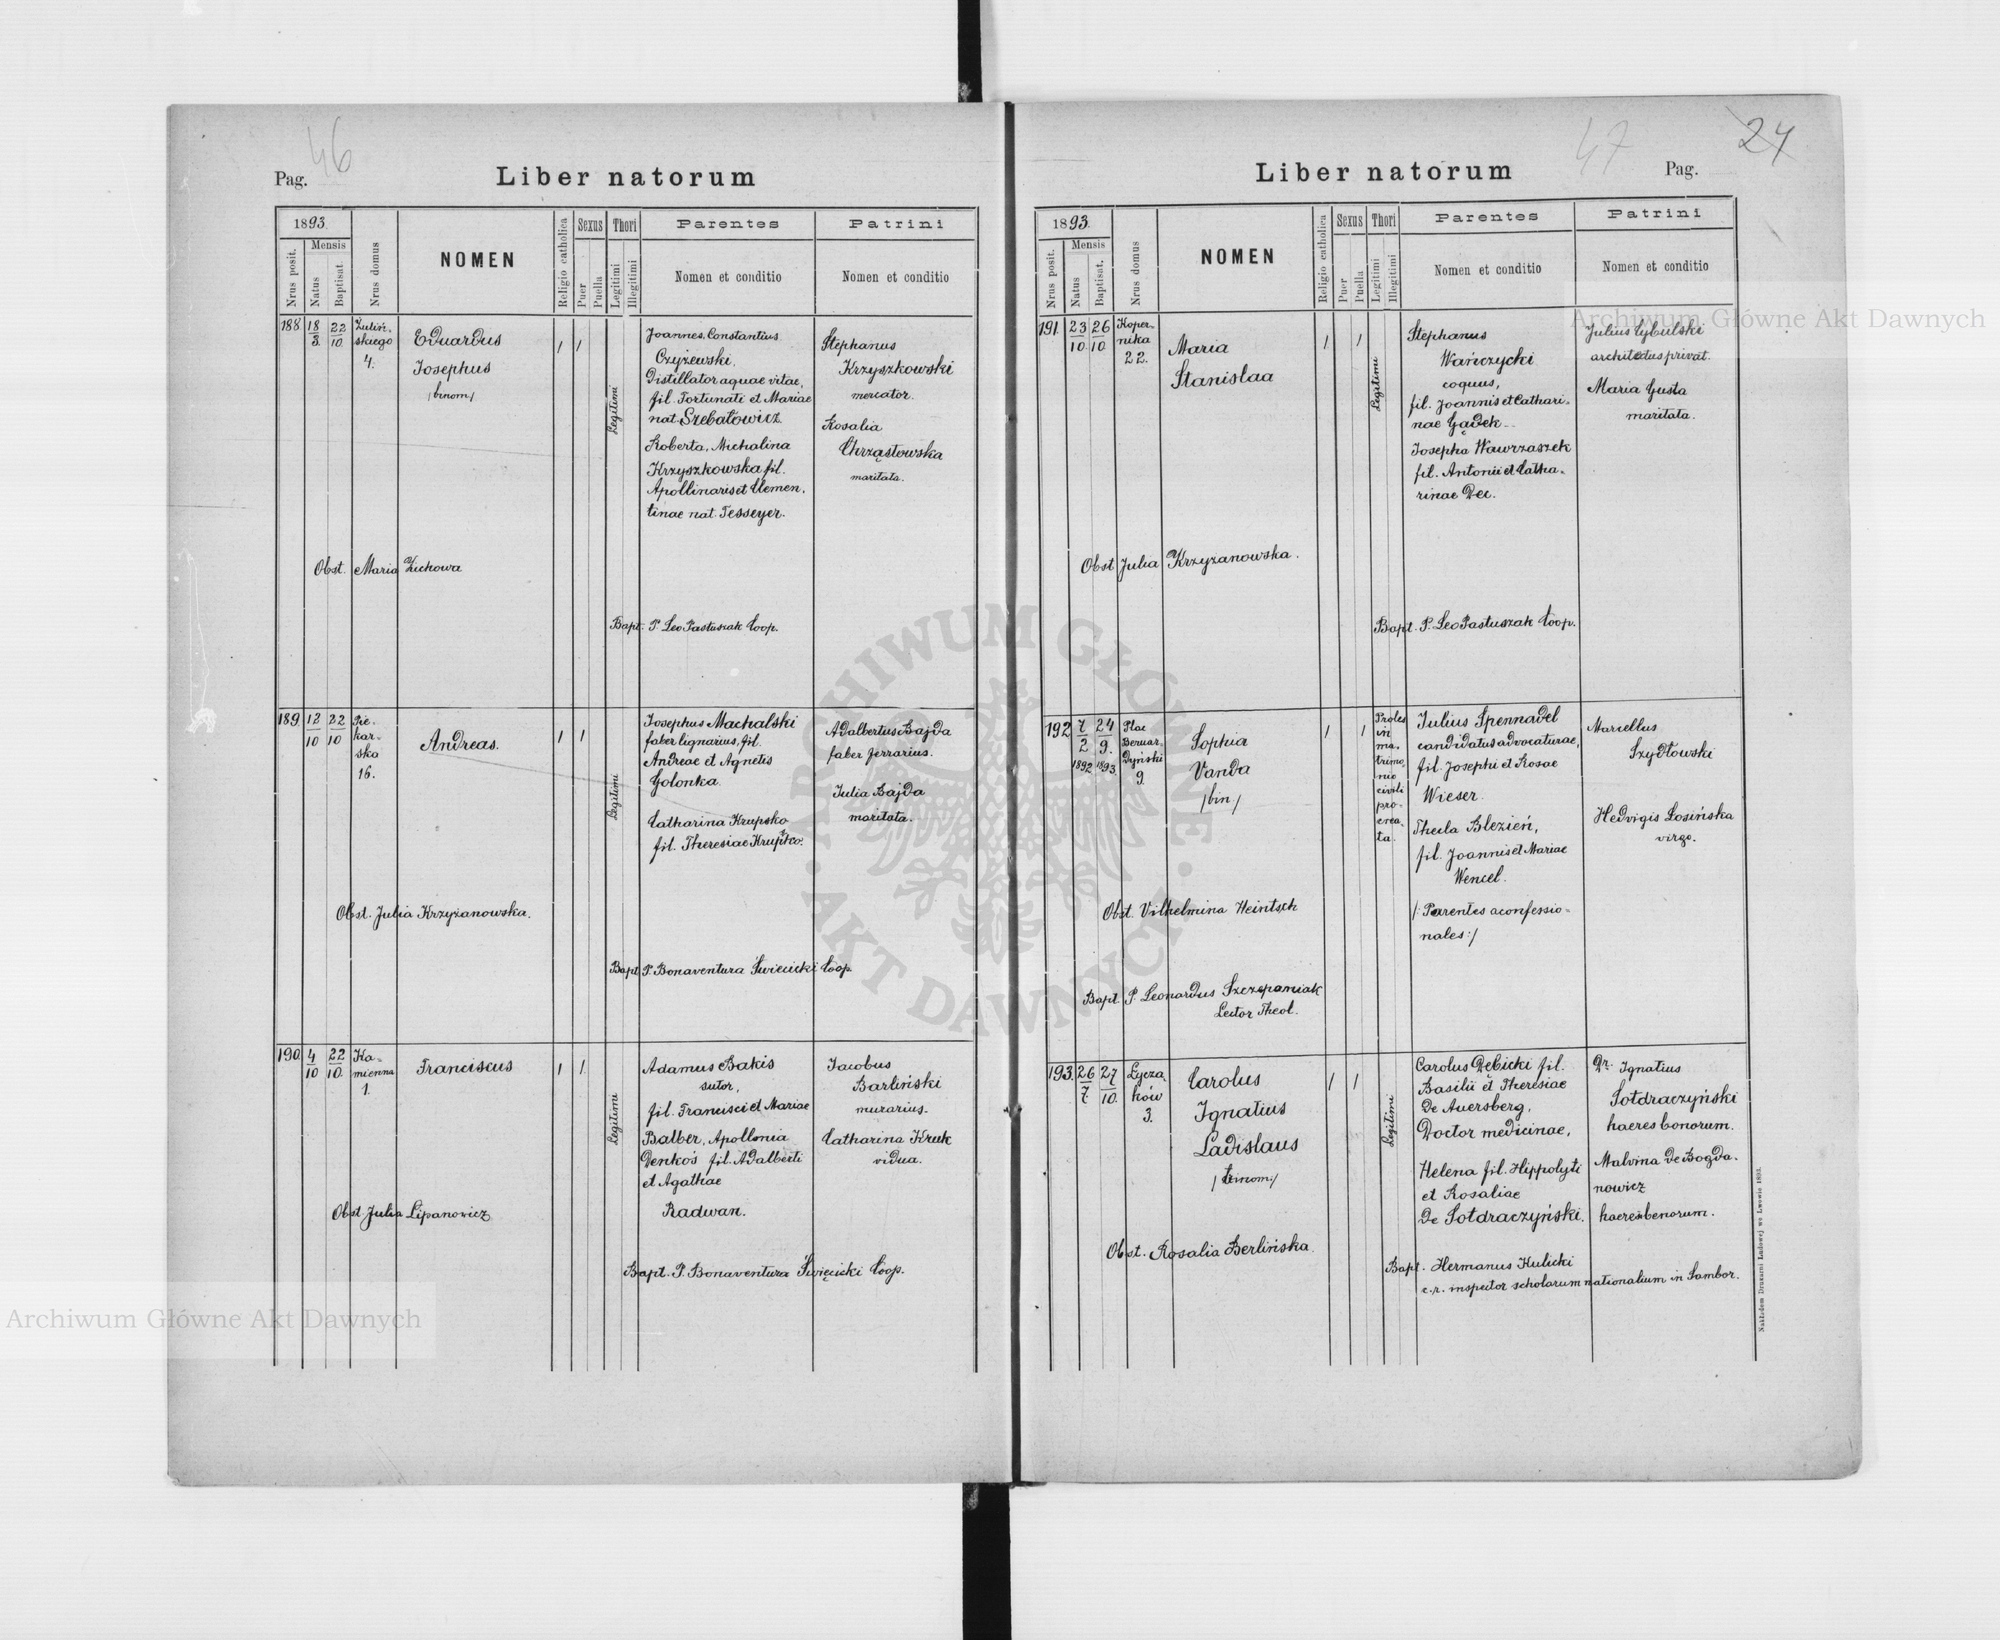 46
Pag.
Liber natorum
1893.
Nrus posit.
Mensis
Natus
Baptisat.
Nrus domus
NOMEN
Religio catholica
Sexus
Puer
Puella
Thori
Legitimi
Illegitimi
Parentes
Nomen et conditio
Patrini
Nomen et conditio
188
18/3.
22/10
Żuliń-
skiego
4.
Eduardus
Josephus
/binom/
1
1
Legitimi
Joannes, Constantius
Czyżewski.
Distillator aquae vitae,
fil. Fortunati et Mariae
nat. Szebatowicz.
Roberta, Michalina
Krzyszkowska fil.
Apollinaris et Clemen,
tinae nat. Tesseyer.
Stephanus
Krzyszkowski
mercator.
Rosalia
Chrząstowska
maritata.
Obst. Maria Zichowa
Bapt. P. Leo Pastuszak Coop.
189
12/10
22/10
Pie-
kar-
ska
16.
Andreas.
1
1
Legitimi
Josephus Machalski
faber lignarius, fil.
Andreae et Agnetis
Golonka.
Catharina Krupsko
fil. Theresiae Krupsko.
Adalbertus Bajda
faber ferrarius.
Julia Bajda
maritata.
Obst. Julia Krzyżanowska.
Bapt. P. Bonaventura Swiecicki Coop.
190
4/10
22/10.
Ka-
mienna
1.
Franciscus
1
1
Legitimi
Adamus Bakis
sutor,
fil. Francisci et Mariae
Balber, Apollonia
Denkoś fil. Adalberti
et Agathae
Radwan.
Jacobus
Barliński
murarius.
Catharina Kruk
vidua.
Obst Julia Lipanowicz
Bapt. P. Bonaventura Święcicki Coop.
47
24
Liber natorum
Pag.
1893.
Nrus posit.
Mensis
Natus
Baptisat.
Nrus domus
NOMEN
Religio catholica
Sexus
Puer
Puella
Thori
Legitimi
Illegitimi
Parentes
Nomen et conditio
Patrini
Nomen et conditio
191.
23/10.
26/10
Koper-
nika
22.
Maria
Stanislaa
1
1
Legitimi
Stephanus
Wańczycki
coquus,
fil. Joannis et Cathari-
nae Gądek--
Josepha Wawrzaszek
fil. Antonii et Catha-
rinae Dec.
Julius Cybulski
architectus privat.
Maria Gusta
maritata.
Obst Julia Krzyżanowska.
Bapt. P. Leo Pastuszak Coop.
192
7/2
1892
24/9.
1893.
Plac
Bernar-
dyński
9.
Sophia
Vanda
/bin./
1
1
Proles
in
ma-
trimo-
nio
civili
pro-
crea-
ta.
Julius Spennadel
candidatus advocaturae,
fil. Josephi et Rosae
Wieser.
Thecla Blezień,
fil. Joannis et Mariae
Wencel.
/:Parentes aconfessio-
nales:/
Marcellus
Szydłowski
Hedvigis Losińska
virgo.
Obst. Vilhelmina Heintsch
Bapt P. Leonardus Szczepaniak
Lector Theol.
193.
26/7.
27/10.
Łycza-
ków
3.
Carolus
Ignatius
Ladislaus
/trinom:/
1
1
Legitimi
Carolus Dębicki fil.
Basilii et Theresiae
de Auersberg,
Doctor medicinae,
Helena fil. Hippolyti
et Rosaliae
de Sołdraczyński.
Dr. Ignatius
Sołdraczyński
haeres bonorum.
Malvina de Bogda-
nowicz
haeres bonorum.
Obst. Rosalia Berlińska.
Bapt. Hermanus Kulicki
c.r. inspector scholarum nationalium in Sambor.
Nakładem Drukarni Ludowej we Lwowie 1893.
Archiwum Główne Akt Dawnych
ARCHIWUM GŁÓWNE
AKT DAWNYCH
Archiwum Główne Akt Dawnych